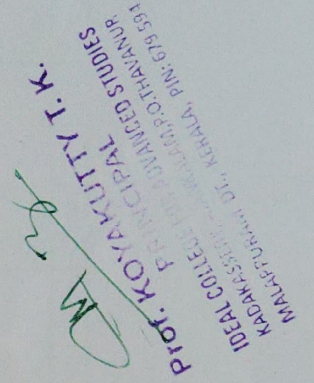 Prof. KOYAKUTTY T. K.
PRINCIPAL
IDEAL COLLEGE FOR ADVANCED STUDIES
KADAKASSERY, P.O.THAVANUR
MALAPPURAM DT., KERALA, PIN: 679 591